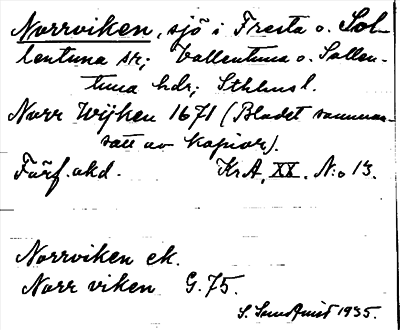 Norrviken, sjö i Fresta o. Sol-
lentuna sr; Vallentuna o. Sollen-
tuna hdr; Sthlmsl.
Norr Wijken 1671 (Bladet samman-
satt av kopior).
Förf. okd. KrA, XX. N:o 13.
Norrviken ek.
Norr viken G. 75.
S. Sundquist 1935.